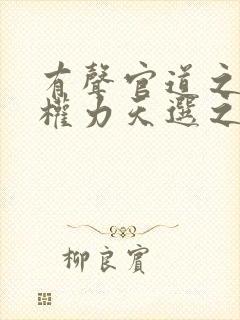 有聲官道之
權力天選之
柳良賓